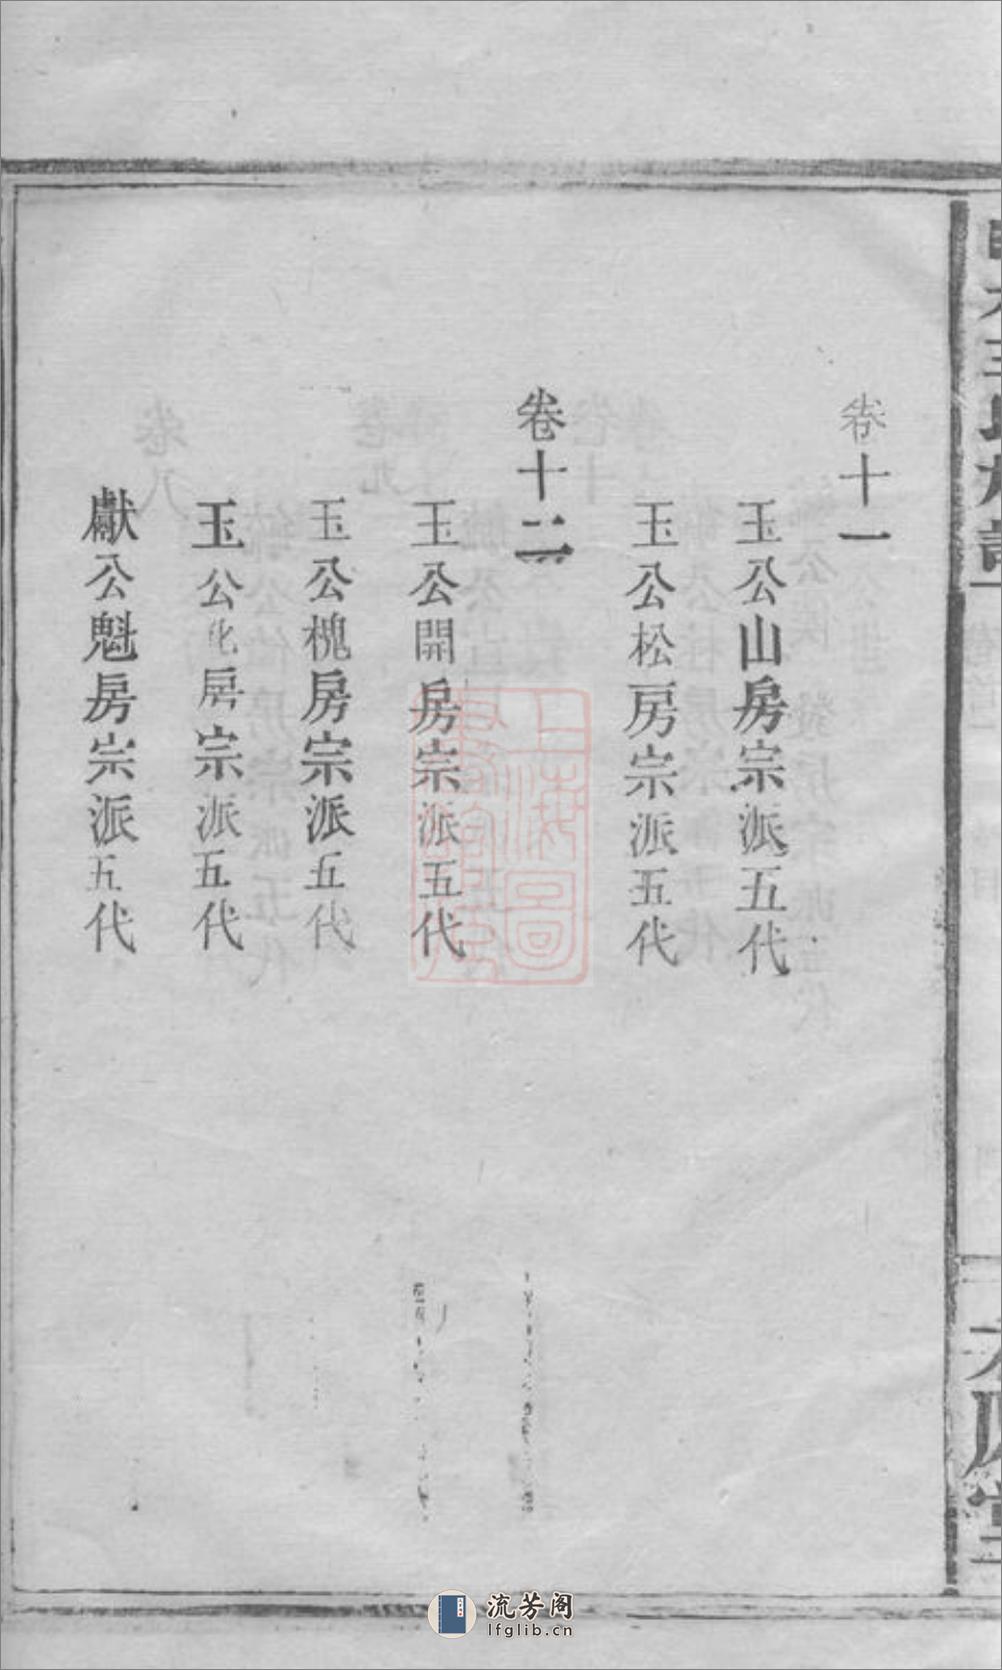 卷十一
玉公山房宗派五代
玉公松房宗派五代
卷十二
玉公開房宗派五代
玉公槐房宗派五代
玉公化房宗派五代
獻公魁房宗派五代
上海圖
流芳阁
lfglib.cn